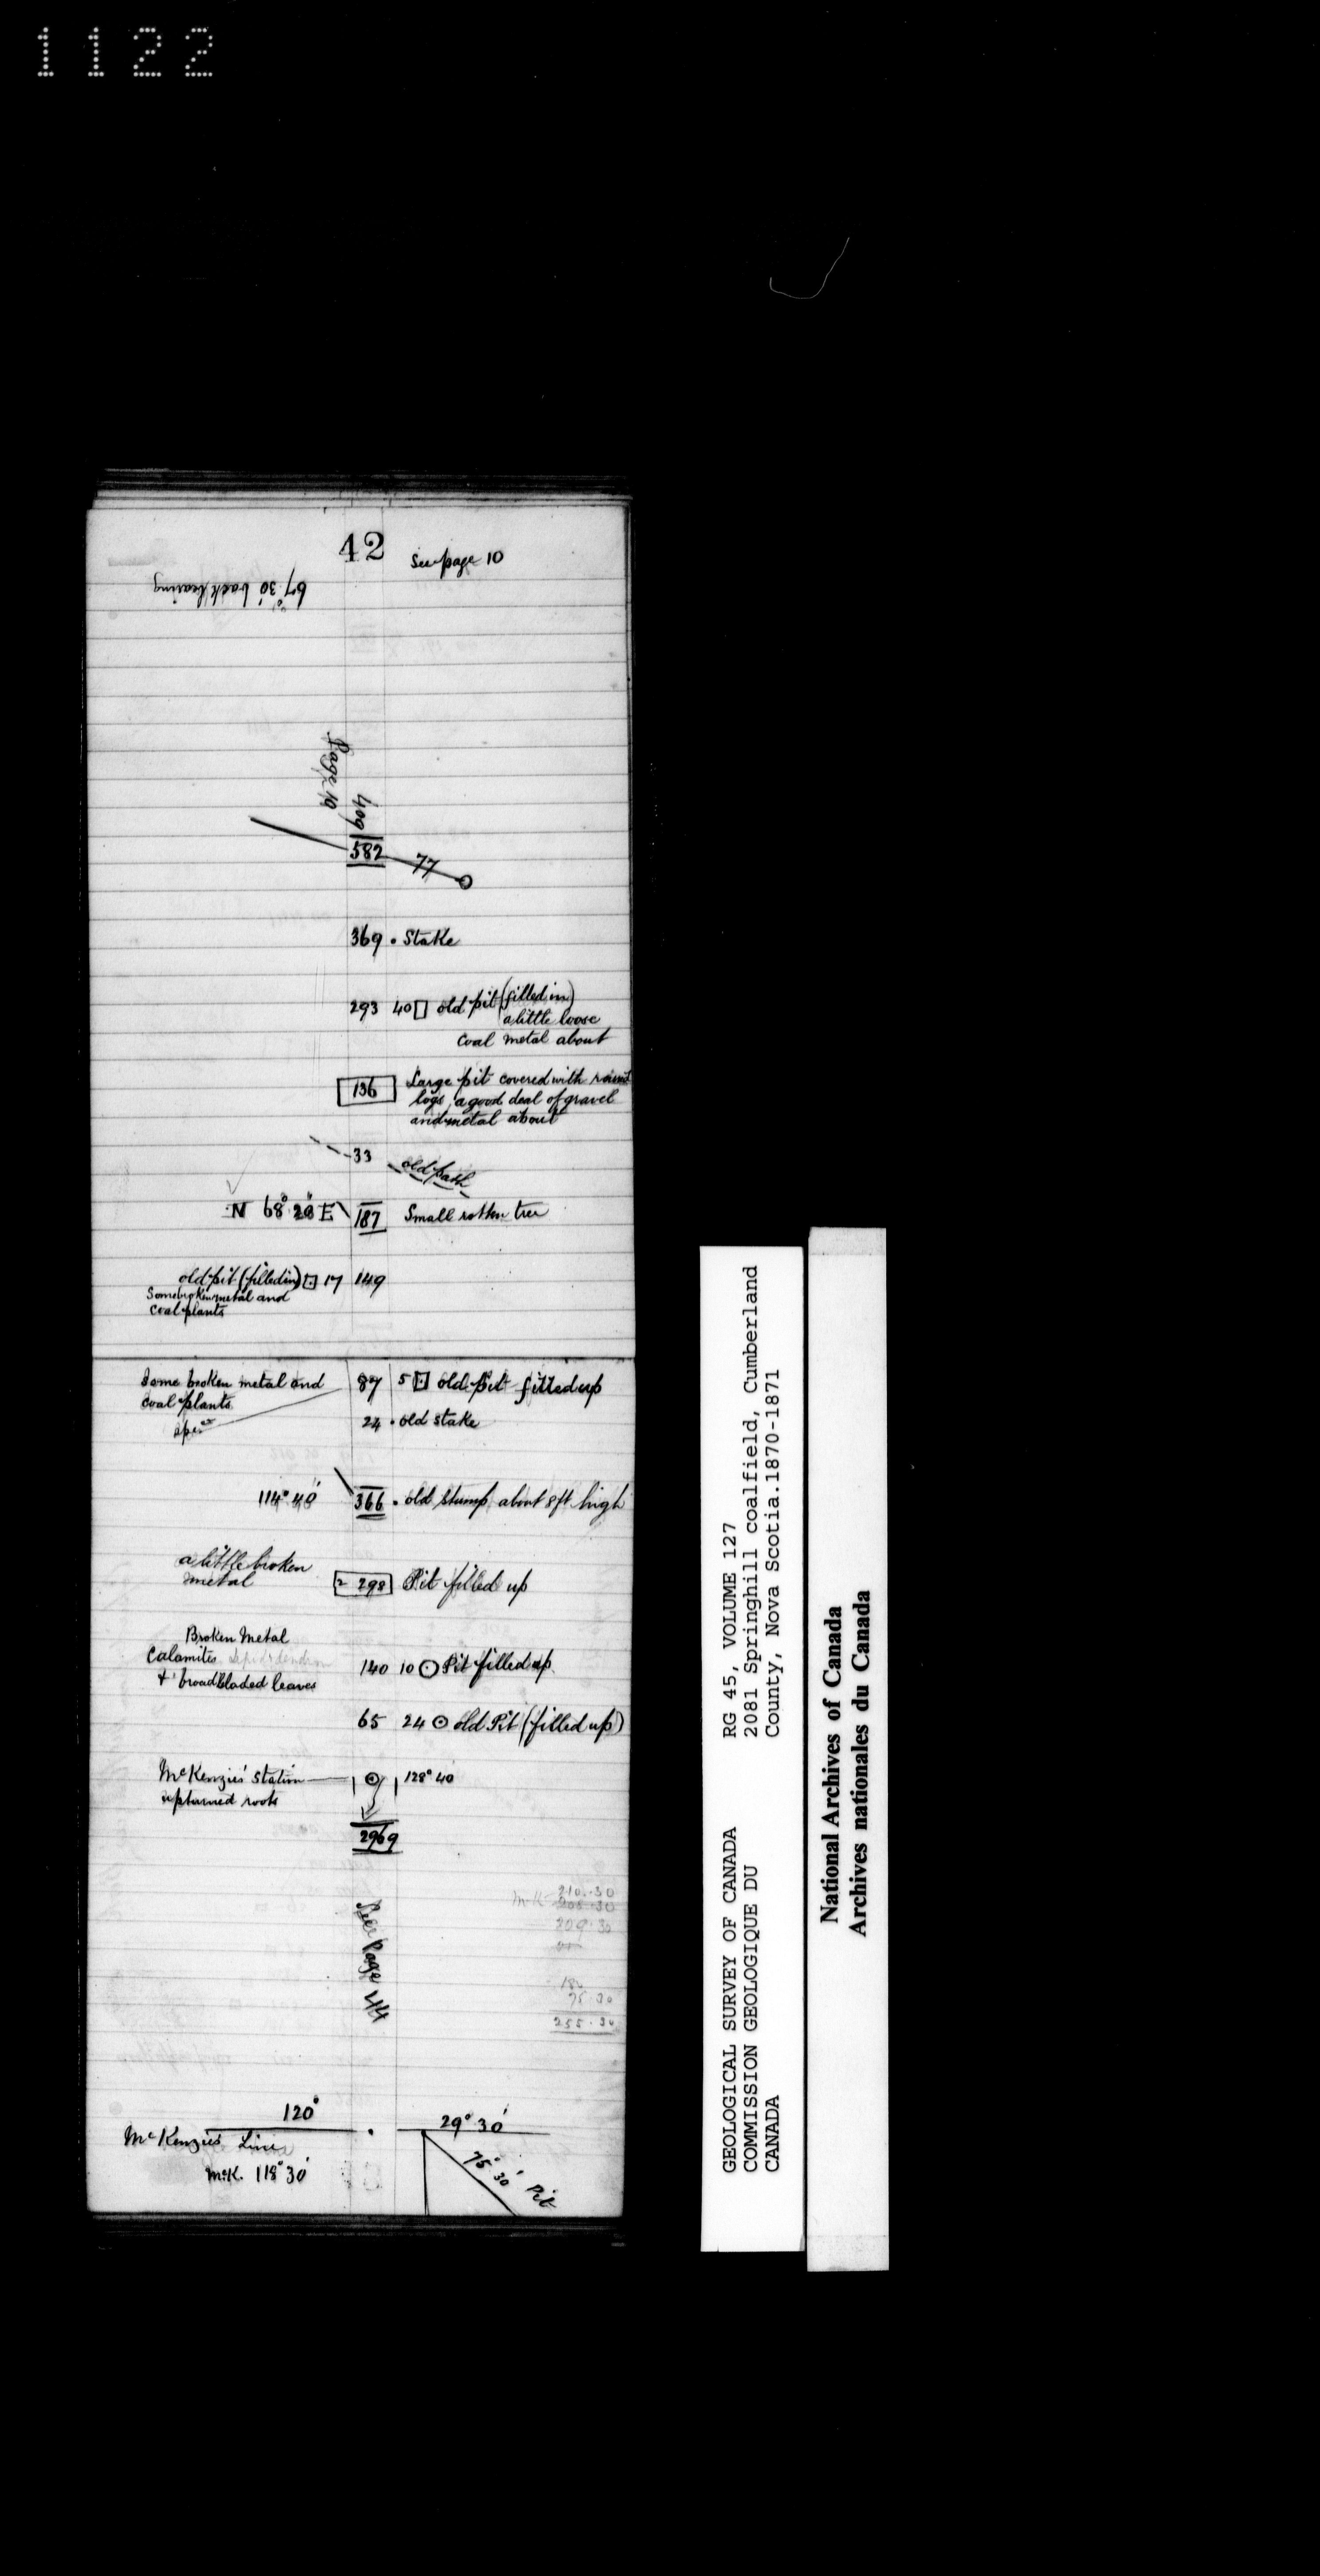 1122
42
See page 10
67° 30' back bearing
Page 10
409
582 77
369 • Stake
293 40 old pit (filled in)
a little loose
Coal metal about
136 Large pit covered with round
logs, a good deal of gravel
and metal about
33 old path
N 68° 20' E 187 Small rotten tree
old pit (filled in) 17 149
Some broken metal and
Coal plants
Some broken metal and 87 5 old pit filled up
coal plants
24 • old stake
114° 40' 366 • old stump about 8ft high
a little broken
metal 2 298 Pit filled up
Broken Metal
Calamites Lepidodendron 140 10 Pit filled up
+ broad bladed leaves
65 24 old Pit (filled up)
McKenzies' Station 128° 40
upturned roots
2969
See Page 44
McK 210.30
208.30
209.30
180
75.30
255.30
120° 29° 30'
McKenzies' Line
McK. 118° 30' 75° 30' Pit
GEOLOGICAL SURVEY OF CANADA RG 45, VOLUME 127
COMMISSION GEOLOGIQUE DU 2081 Springhill coalfield, Cumberland
CANADA County, Nova Scotia.1870-1871
National Archives of Canada
Archives nationales du Canada